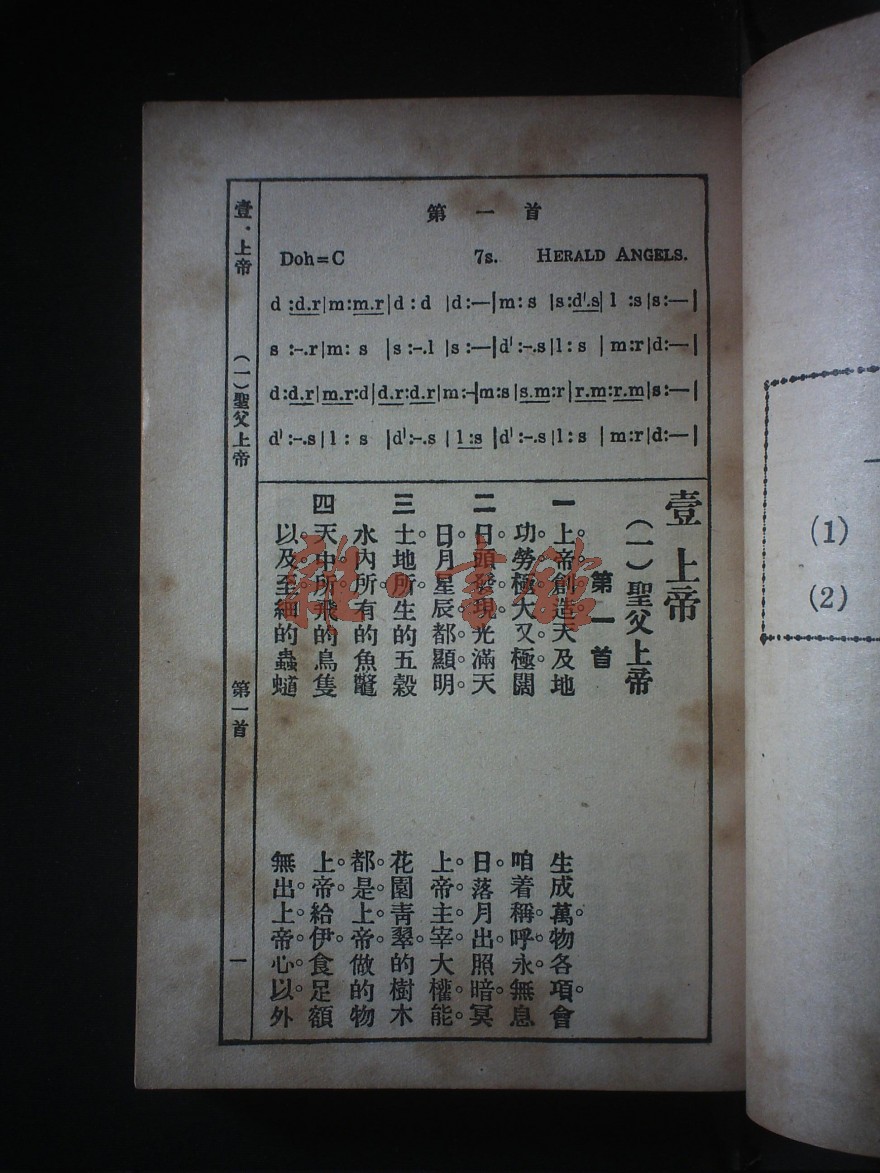 第一首
Doh=C 7s. HERALD ANGELS.
d :d.r|m:m.r|d : d |d:—|m: s |s:d'.s| l :s|s:—|
s :-.r|m: s |s :-.l |s :—|d' :-.s|l : s | m:r|d:—|
d:d.r|m.r:d|d.r:d.r|m:-|m:s|s.m:r|r.m:r.m|s:—|
d' :-.s| l : s |d':-.s | l:s |d' :-.s|l : s | m:r|d:—|
壹 上帝
(一)聖父上帝
第一首
一 上帝創造天及地 生成萬物各項會
功勞極大又極闊 咱着稱呼永無息
二 日頭發現光滿天 日落月出照暗冥
日月星辰都顯明 上帝主宰大權能
三 土地所生的五穀 花園青翠的樹木
水內所有的魚鼈 都是上帝做的物
四 天中所飛的鳥隻 上帝給伊食足額
以及至細的蟲螘 無出上帝心以外
壹·上帝 (一)聖父上帝 第一首 一
雜·書館
(1)
(2)